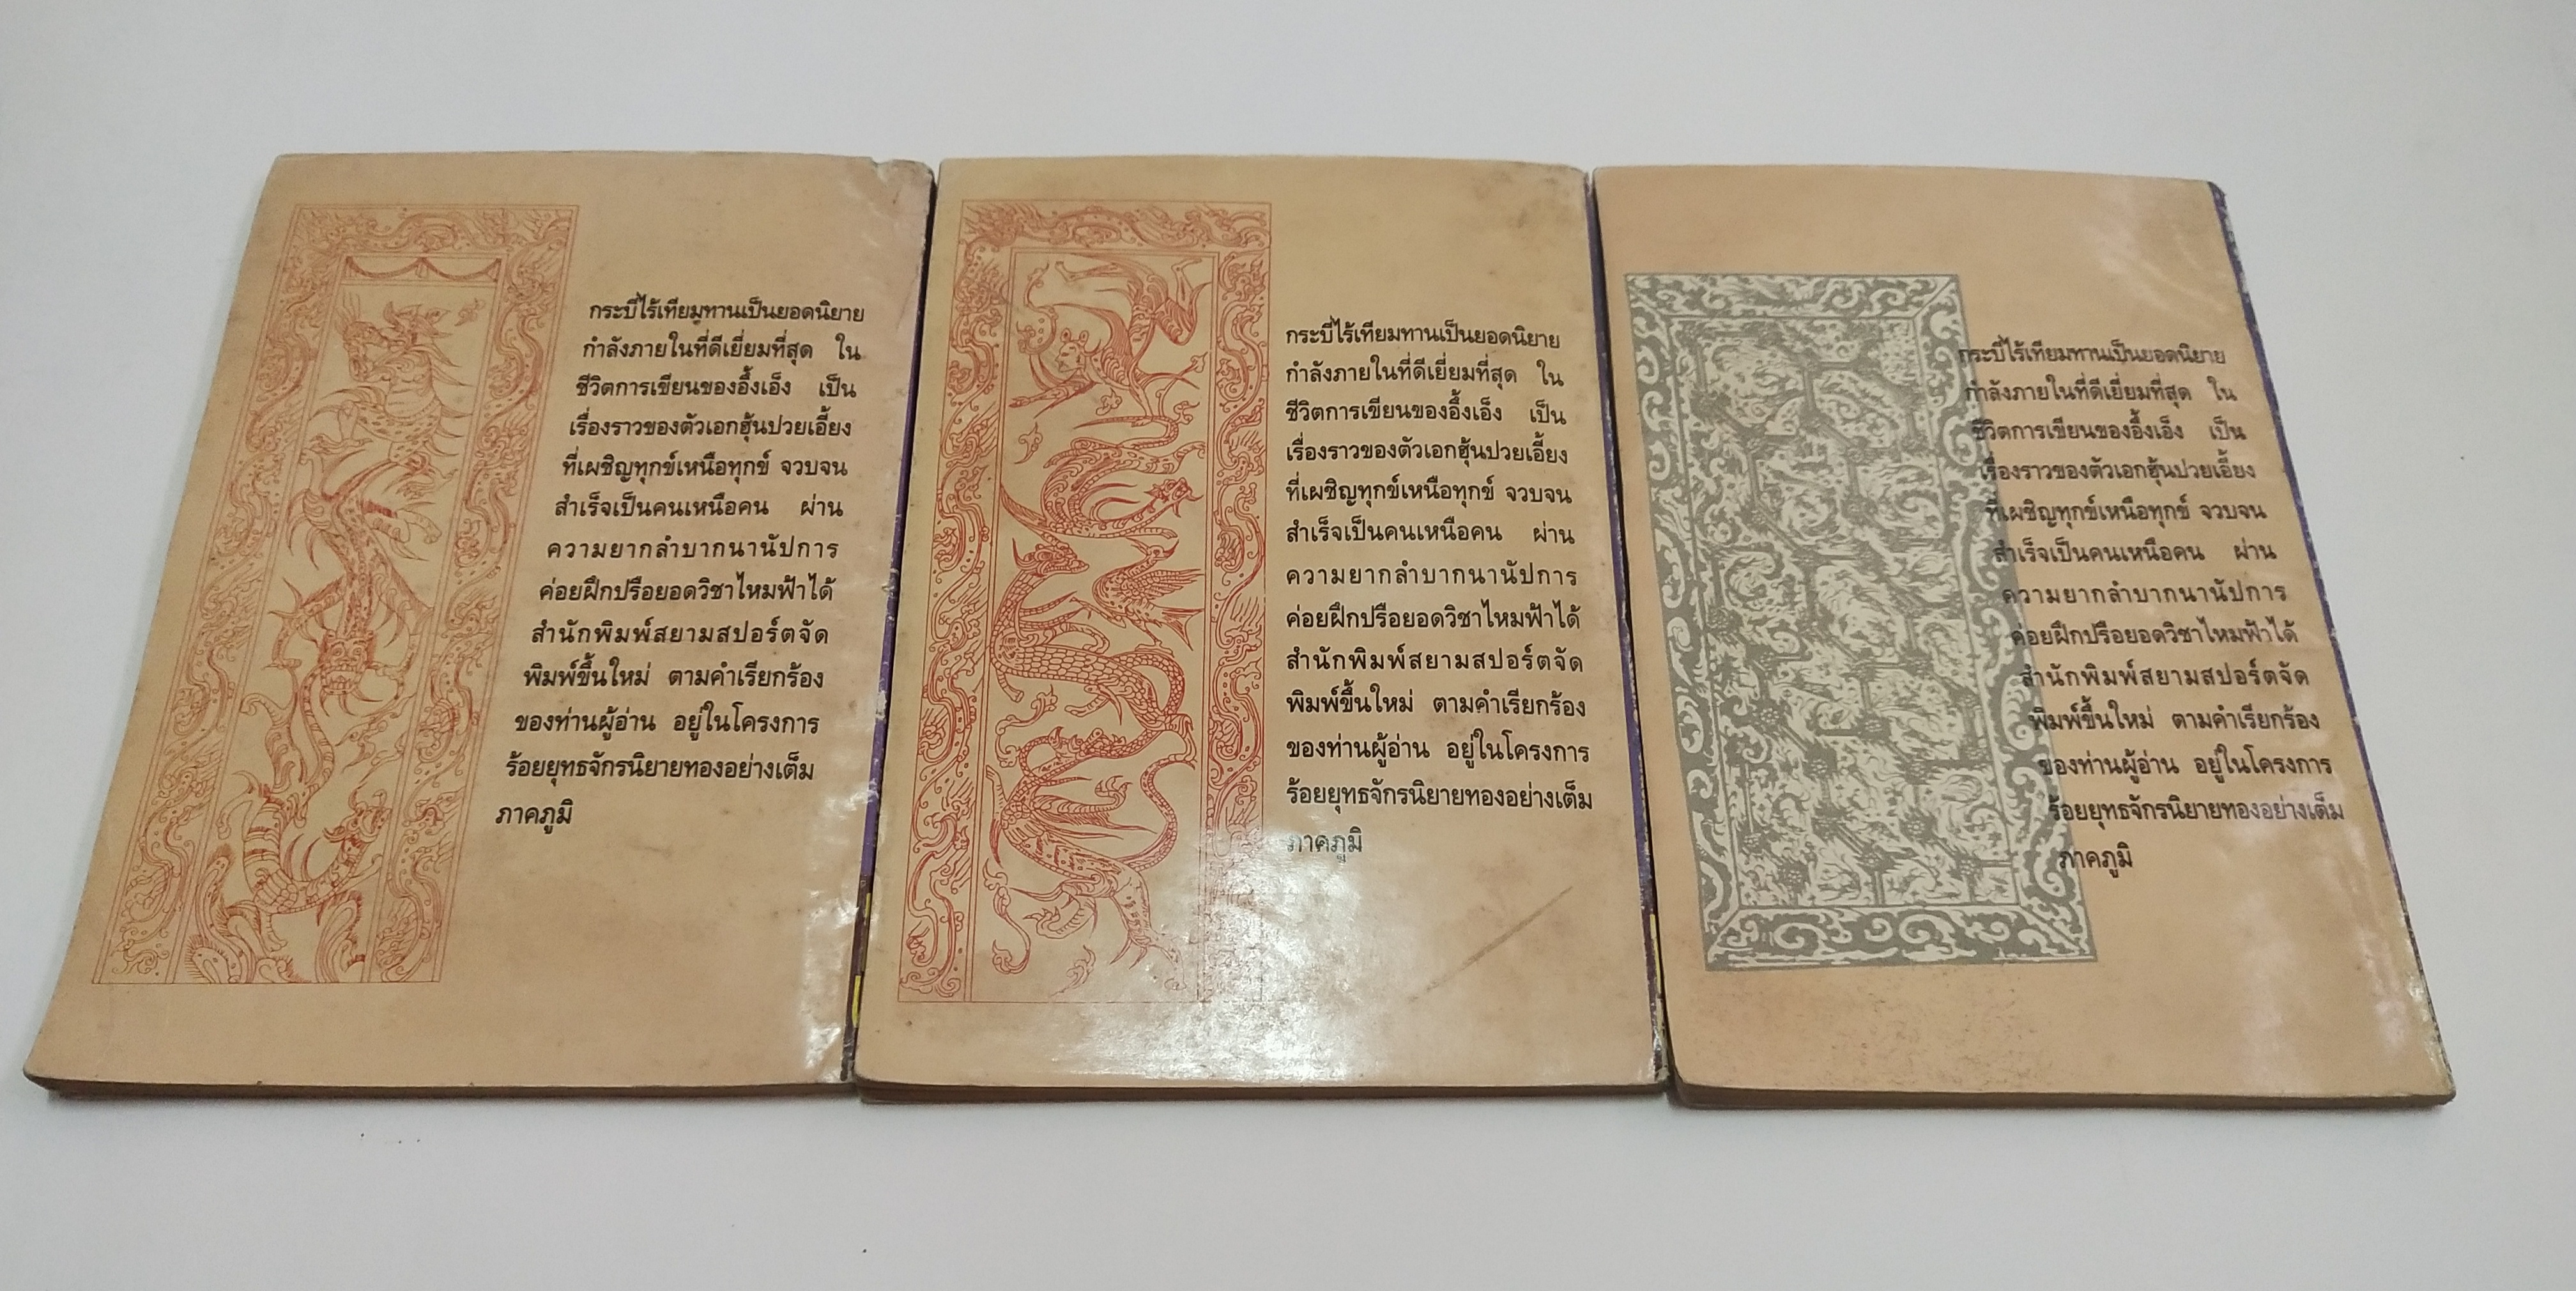 กระบี่ไร้เทียมทานเป็นยอดนิยาย
กำลังภายในที่ดีเยี่ยมที่สุด ใน
ชีวิตการเขียนของอึ้งเอ็ง เป็น
เรื่องราวของตัวเอกฮุ้นปวยเอี้ยง
ที่เผชิญทุกข์เหนือทุกข์ จวบจน
สำเร็จเป็นคนเหนือคน ผ่าน
ความยากลำบากนานัปการ
ค่อยฝึกปรือยอดวิชาไหมฟ้าได้
สำนักพิมพ์สยามสปอร์ตจัด
พิมพ์ขึ้นใหม่ ตามคำเรียกร้อง
ของท่านผู้อ่าน อยู่ในโครงการ
ร้อยยุทธจักรนิยายทองอย่างเต็ม
ภาคภูมิ
กระบี่ไร้เทียมทานเป็นยอดนิยาย
กำลังภายในที่ดีเยี่ยมที่สุด ใน
ชีวิตการเขียนของอึ้งเอ็ง เป็น
เรื่องราวของตัวเอกฮุ้นปวยเอี้ยง
ที่เผชิญทุกข์เหนือทุกข์ จวบจน
สำเร็จเป็นคนเหนือคน ผ่าน
ความยากลำบากนานัปการ
ค่อยฝึกปรือยอดวิชาไหมฟ้าได้
สำนักพิมพ์สยามสปอร์ตจัด
พิมพ์ขึ้นใหม่ ตามคำเรียกร้อง
ของท่านผู้อ่าน อยู่ในโครงการ
ร้อยยุทธจักรนิยายทองอย่างเต็ม
ภาคภูมิ
กระบี่ไร้เทียมทานเป็นยอดนิยาย
กำลังภายในที่ดีเยี่ยมที่สุด ใน
ชีวิตการเขียนของอึ้งเอ็ง เป็น
เรื่องราวของตัวเอกฮุ้นปวยเอี้ยง
ที่เผชิญทุกข์เหนือทุกข์ จวบจน
สำเร็จเป็นคนเหนือคน ผ่าน
ความยากลำบากนานัปการ
ค่อยฝึกปรือยอดวิชาไหมฟ้าได้
สำนักพิมพ์สยามสปอร์ตจัด
พิมพ์ขึ้นใหม่ ตามคำเรียกร้อง
ของท่านผู้อ่าน อยู่ในโครงการ
ร้อยยุทธจักรนิยายทองอย่างเต็ม
ภาคภูมิ